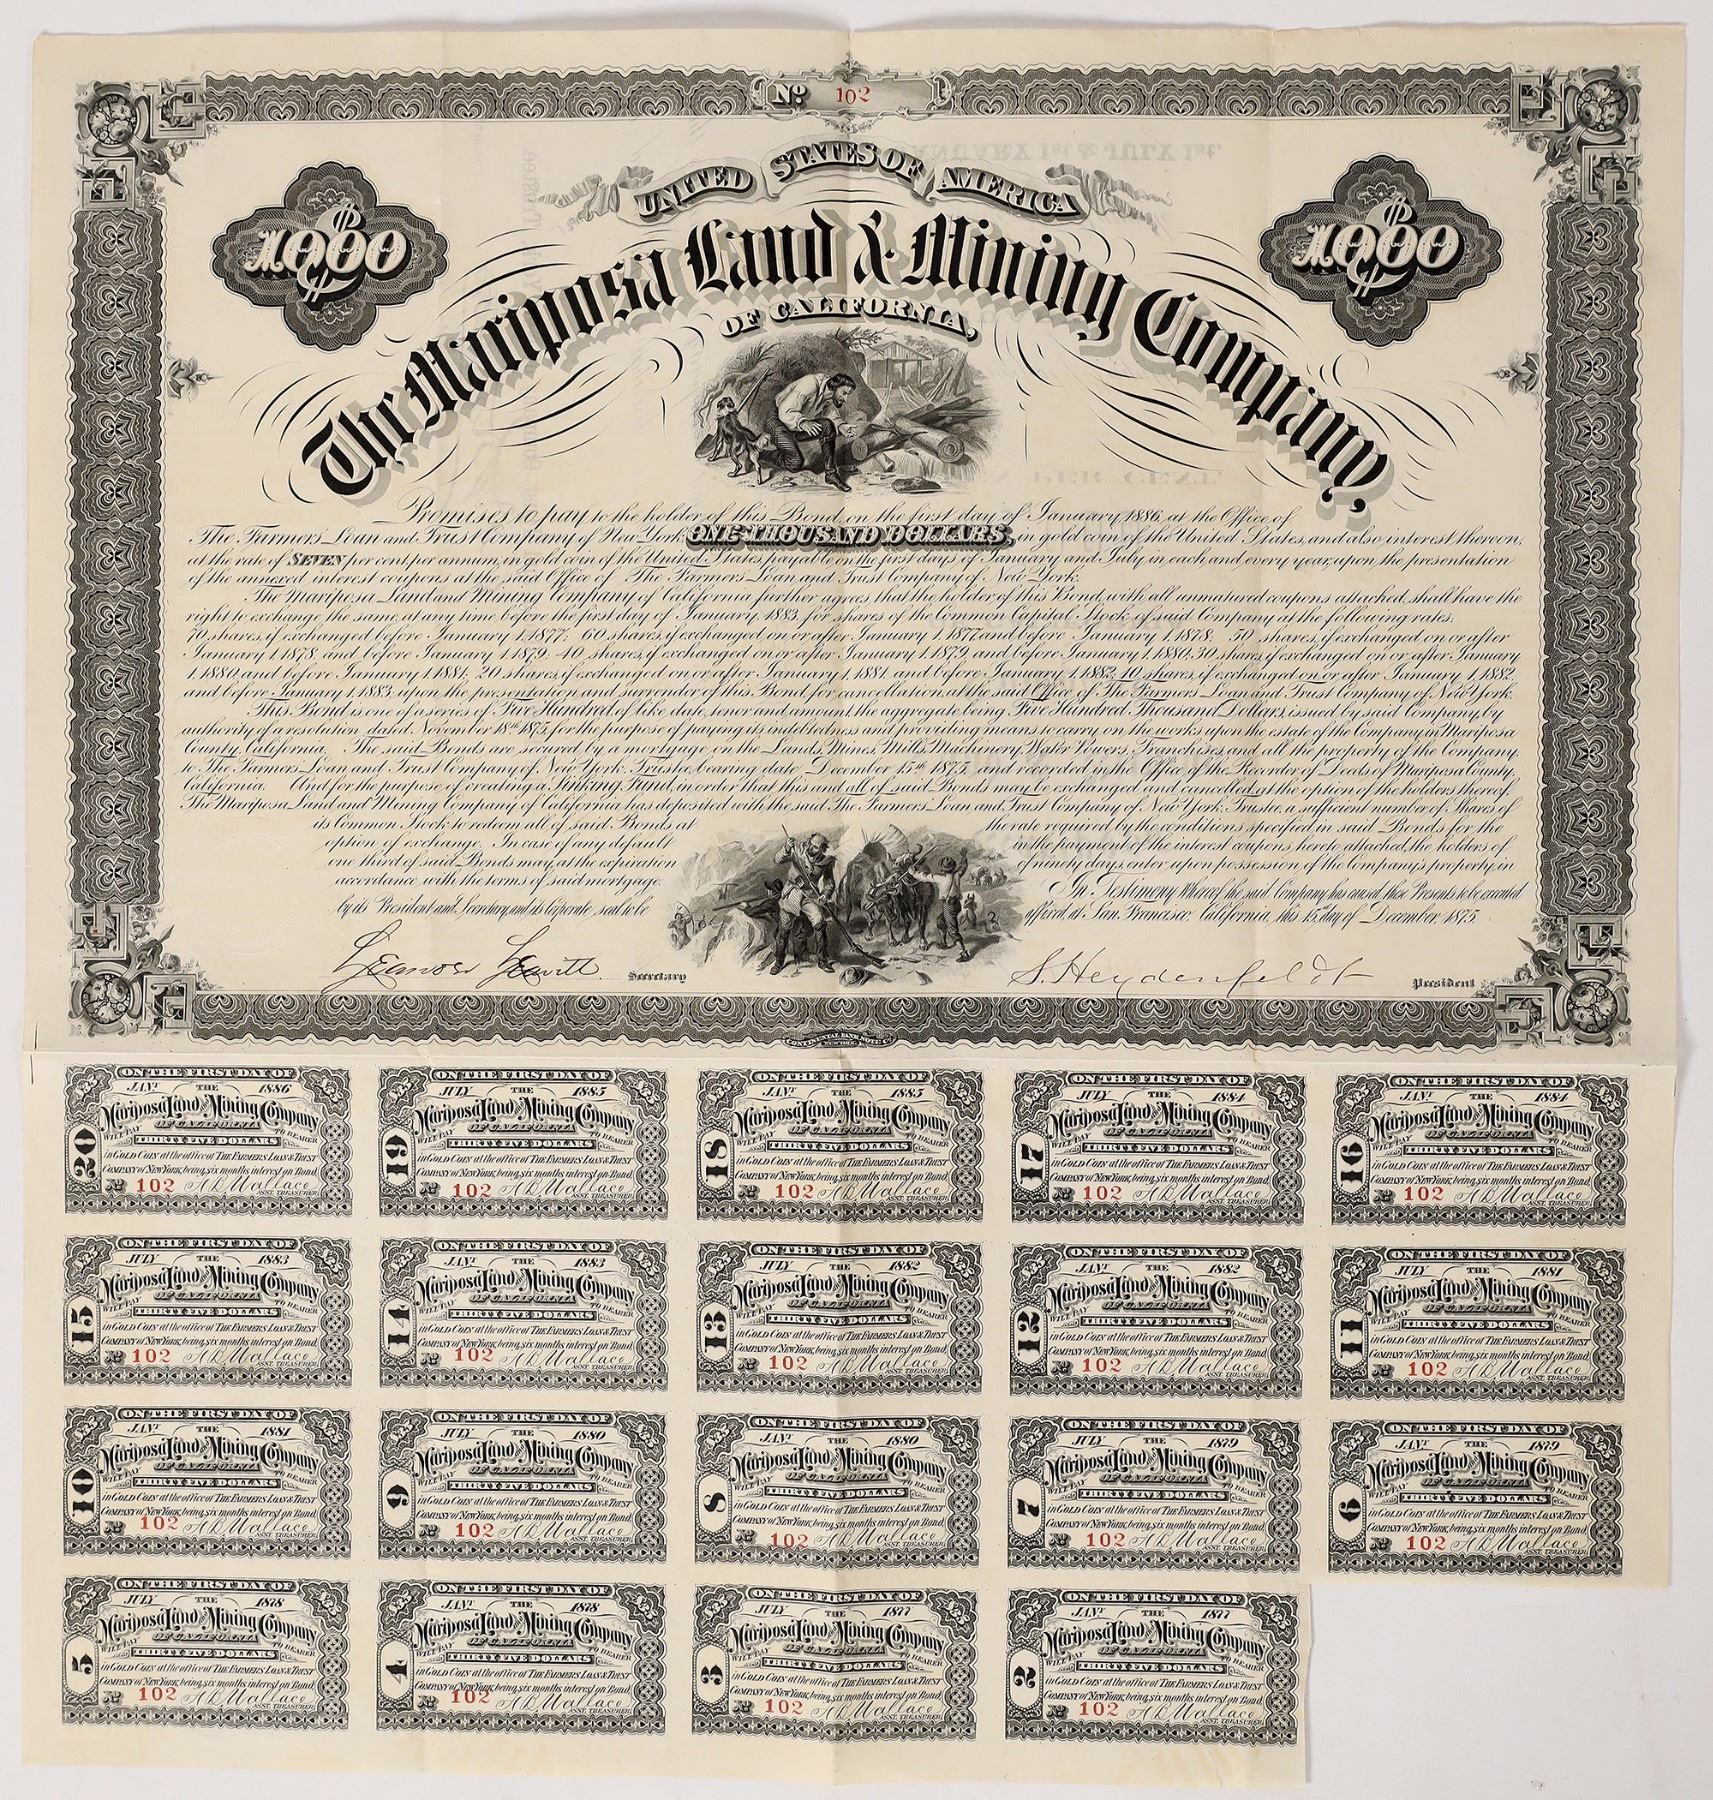 No 102
UNITED STATES OF AMERICA
The Mariposa Land & Mining Company,
OF CALIFORNIA,
$1000
$1000
Promises to pay to the holder of this Bond, on the first day of January, 1886, at the Office of
The Farmers' Loan and Trust Company of New York, ONE THOUSAND DOLLARS, in gold coin of the United States, and also, interest thereon,
at the rate of SEVEN per cent. per annum, in gold coin of the United States payable on the first days of January and July, in each and every year, upon the presentation
of the annexed interest coupons at the said Office of The Farmers Loan and Trust Company of New York.
The Mariposa Land and Mining Company of California further agrees that the holder of this Bond, with all unmatured coupons attached, shall have the
right to exchange the same, at any time before the first day of January, 1883, for shares of the Common Capital Stock of said Company at the following rates:
70 shares, if exchanged before January 1, 1877; 60 shares, if exchanged on or after January 1, 1877 and before January 1, 1878; 50 shares, if exchanged on or after
January 1, 1878, and before January 1, 1879; 40 shares, if exchanged on or after January 1, 1879 and before January 1, 1880; 30 shares, if exchanged on or after January
1, 1880, and before January 1, 1881; 20 shares, if exchanged on or after January 1, 1881 and before January 1, 1882; 10 shares, if exchanged on or after January 1, 1882,
and before January 1, 1883, upon the presentation and surrender of this Bond, for cancellation, at the said Office of The Farmers Loan and Trust Company of New York.
This Bond is one of a series of Five Hundred, of like date, tenor and amount, the aggregate being Five Hundred Thousand Dollars, issued by said Company, by
authority of a resolution dated November 18th 1875, for the purpose of paying its indebtedness and providing means to carry on the works upon the estate of the Company, in Mariposa
County, California. The said Bonds are secured by a mortgage on the Lands, Mines, Mills, Machinery, Water Powers, Franchises, and all the property of the Company,
to The Farmers' Loan and Trust Company of New York, Trustee, bearing date December 15th 1875, and recorded in the Office of the Recorder of Deeds of Mariposa County,
California. And for the purpose of creating a Sinking Fund, in order that this and all of said Bonds may be exchanged and cancelled, at the option of the holders thereof,
The Mariposa Land and Mining Company of California has deposited with the said The Farmers' Loan and Trust Company of New York, Trustee, a sufficient number of Shares of
its Common Stock to redeem all of said Bonds at the rate required by the conditions specified in said Bonds for the
option of exchange. In case of any default in the payment of the interest coupons hereto attached, the holders of
one third of said Bonds may, at the expiration of ninety days, enter upon possession of the Company's property, in
accordance with the terms of said mortgage. In Testimony Whereof the said Company has caused these Presents to be executed
by its President and Secretary, and its Corporate seal to be affixed, at San Francisco, California, this 15 day of December, 1875.
Leander Leavitt Secretary S. Heydenfeldt President
CONTINENTAL BANK NOTE Co NEW YORK
20
ON THE FIRST DAY OF
JANy THE 1886
Mariposa Land and Mining Company
OF CALIFORNIA
WILL PAY TO BEARER
THIRTY FIVE DOLLARS
in GOLD COIN at the office of THE FARMERS LOAN & TRUST
COMPANY of NEW YORK, being six months interest on Bond
No 102 A D Wallace
ASST. TREASURER
19
ON THE FIRST DAY OF
JULY THE 1885
Mariposa Land and Mining Company
OF CALIFORNIA
WILL PAY TO BEARER
THIRTY FIVE DOLLARS
in GOLD COIN at the office of THE FARMERS LOAN & TRUST
COMPANY of NEW YORK, being six months interest on Bond
No 102 A D Wallace
ASST. TREASURER
18
ON THE FIRST DAY OF
JANy THE 1885
Mariposa Land and Mining Company
OF CALIFORNIA
WILL PAY TO BEARER
THIRTY FIVE DOLLARS
in GOLD COIN at the office of THE FARMERS LOAN & TRUST
COMPANY of NEW YORK, being six months interest on Bond
No 102 A D Wallace
ASST. TREASURER
17
ON THE FIRST DAY OF
JULY THE 1884
Mariposa Land and Mining Company
OF CALIFORNIA
WILL PAY TO BEARER
THIRTY FIVE DOLLARS
in GOLD COIN at the office of THE FARMERS LOAN & TRUST
COMPANY of NEW YORK, being six months interest on Bond
No 102 A D Wallace
ASST. TREASURER
16
ON THE FIRST DAY OF
JANy THE 1884
Mariposa Land and Mining Company
OF CALIFORNIA
WILL PAY TO BEARER
THIRTY FIVE DOLLARS
in GOLD COIN at the office of THE FARMERS LOAN & TRUST
COMPANY of NEW YORK, being six months interest on Bond
No 102 A D Wallace
ASST. TREASURER
15
ON THE FIRST DAY OF
JULY THE 1883
Mariposa Land and Mining Company
OF CALIFORNIA
WILL PAY TO BEARER
THIRTY FIVE DOLLARS
in GOLD COIN at the office of THE FARMERS LOAN & TRUST
COMPANY of NEW YORK, being six months interest on Bond
No 102 A D Wallace
ASST. TREASURER
14
ON THE FIRST DAY OF
JANy THE 1883
Mariposa Land and Mining Company
OF CALIFORNIA
WILL PAY TO BEARER
THIRTY FIVE DOLLARS
in GOLD COIN at the office of THE FARMERS LOAN & TRUST
COMPANY of NEW YORK, being six months interest on Bond
No 102 A D Wallace
ASST. TREASURER
13
ON THE FIRST DAY OF
JULY THE 1882
Mariposa Land and Mining Company
OF CALIFORNIA
WILL PAY TO BEARER
THIRTY FIVE DOLLARS
in GOLD COIN at the office of THE FARMERS LOAN & TRUST
COMPANY of NEW YORK, being six months interest on Bond
No 102 A D Wallace
ASST. TREASURER
12
ON THE FIRST DAY OF
JANy THE 1882
Mariposa Land and Mining Company
OF CALIFORNIA
WILL PAY TO BEARER
THIRTY FIVE DOLLARS
in GOLD COIN at the office of THE FARMERS LOAN & TRUST
COMPANY of NEW YORK, being six months interest on Bond
No 102 A D Wallace
ASST. TREASURER
11
ON THE FIRST DAY OF
JULY THE 1881
Mariposa Land and Mining Company
OF CALIFORNIA
WILL PAY TO BEARER
THIRTY FIVE DOLLARS
in GOLD COIN at the office of THE FARMERS LOAN & TRUST
COMPANY of NEW YORK, being six months interest on Bond
No 102 A D Wallace
ASST. TREASURER
10
ON THE FIRST DAY OF
JANy THE 1881
Mariposa Land and Mining Company
OF CALIFORNIA
WILL PAY TO BEARER
THIRTY FIVE DOLLARS
in GOLD COIN at the office of THE FARMERS LOAN & TRUST
COMPANY of NEW YORK, being six months interest on Bond
No 102 A D Wallace
ASST. TREASURER
9
ON THE FIRST DAY OF
JULY THE 1880
Mariposa Land and Mining Company
OF CALIFORNIA
WILL PAY TO BEARER
THIRTY FIVE DOLLARS
in GOLD COIN at the office of THE FARMERS LOAN & TRUST
COMPANY of NEW YORK, being six months interest on Bond
No 102 A D Wallace
ASST. TREASURER
8
ON THE FIRST DAY OF
JANy THE 1880
Mariposa Land and Mining Company
OF CALIFORNIA
WILL PAY TO BEARER
THIRTY FIVE DOLLARS
in GOLD COIN at the office of THE FARMERS LOAN & TRUST
COMPANY of NEW YORK, being six months interest on Bond
No 102 A D Wallace
ASST. TREASURER
7
ON THE FIRST DAY OF
JULY THE 1879
Mariposa Land and Mining Company
OF CALIFORNIA
WILL PAY TO BEARER
THIRTY FIVE DOLLARS
in GOLD COIN at the office of THE FARMERS LOAN & TRUST
COMPANY of NEW YORK, being six months interest on Bond
No 102 A D Wallace
ASST. TREASURER
6
ON THE FIRST DAY OF
JANy THE 1879
Mariposa Land and Mining Company
OF CALIFORNIA
WILL PAY TO BEARER
THIRTY FIVE DOLLARS
in GOLD COIN at the office of THE FARMERS LOAN & TRUST
COMPANY of NEW YORK, being six months interest on Bond
No 102 A D Wallace
ASST. TREASURER
5
ON THE FIRST DAY OF
JULY THE 1878
Mariposa Land and Mining Company
OF CALIFORNIA
WILL PAY TO BEARER
THIRTY FIVE DOLLARS
in GOLD COIN at the office of THE FARMERS LOAN & TRUST
COMPANY of NEW YORK, being six months interest on Bond
No 102 A D Wallace
ASST. TREASURER
4
ON THE FIRST DAY OF
JANy THE 1878
Mariposa Land and Mining Company
OF CALIFORNIA
WILL PAY TO BEARER
THIRTY FIVE DOLLARS
in GOLD COIN at the office of THE FARMERS LOAN & TRUST
COMPANY of NEW YORK, being six months interest on Bond
No 102 A D Wallace
ASST. TREASURER
3
ON THE FIRST DAY OF
JULY THE 1877
Mariposa Land and Mining Company
OF CALIFORNIA
WILL PAY TO BEARER
THIRTY FIVE DOLLARS
in GOLD COIN at the office of THE FARMERS LOAN & TRUST
COMPANY of NEW YORK, being six months interest on Bond
No 102 A D Wallace
ASST. TREASURER
2
ON THE FIRST DAY OF
JANy THE 1877
Mariposa Land and Mining Company
OF CALIFORNIA
WILL PAY TO BEARER
THIRTY FIVE DOLLARS
in GOLD COIN at the office of THE FARMERS LOAN & TRUST
COMPANY of NEW YORK, being six months interest on Bond
No 102 A D Wallace
ASST. TREASURER